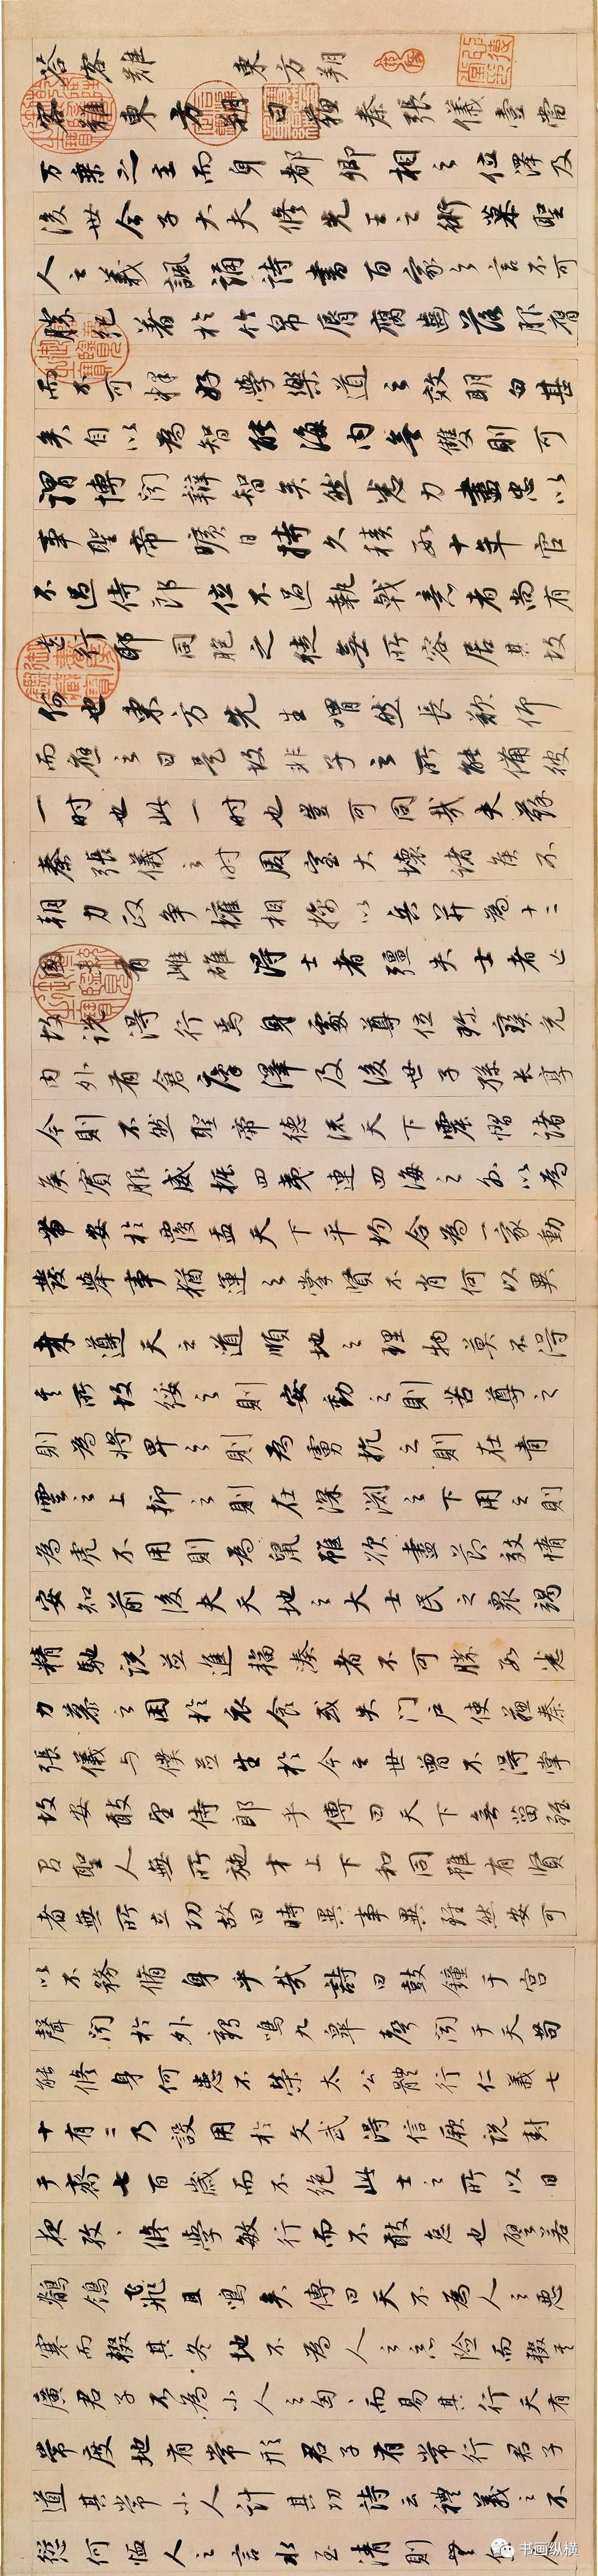 答客難 東方朔
客難東方朔曰蘇秦張儀壹當
万乘之主而身都卿相之位澤及
後世今子大夫修先王之術慕聖
人之義諷誦詩書百家之言不可
勝紀著於竹帛脣腐齒落服膺
而不可釋好學樂道之效明白甚
矣自以為智能海內無雙則可
謂博聞辯智矣然悉力盡忠以
事聖帝曠日持久積數十年官
不過侍郎位不過執戟意者尚有
遺行耶同胞之徒無所容居其故
何也東方先生喟然長歎仰
而應之曰是故非子之所能備彼
一时也此一时也豈可同哉夫蘇
秦張儀之时周室大壞諸侯不
朝力政争權相擒以兵并為十二
國未有雌雄得士者彊失士者亡
故說得行焉身處尊位珍寶充
內外有倉廩澤及後世子孫長享
今則不然聖帝德流天下震慴諸
侯賓服威振四夷連四海之外以為
帶安於覆盂天下平均合為一家動
發舉事猶運之掌賢不肖何以異
哉遵天之道順地之理物莫不得
其所故綏之則安動之則苦尊之
則為將卑之則為虜抗之則在青
雲之上抑之則在深淵之下用之則
為虎不用則為鼠雖欲盡节效情
安知前後夫天地之大士民之衆竭
精馳說並進輻湊者不可勝數悉
力慕之困於衣食或失门户使蘇秦
張儀与僕並生於今之世曾不得掌
故安敢望侍郎乎傳曰天下無菑雖
有聖人無所施才上下和同雖有賢
者無所立功故曰時異事異雖然安可
以不務脩身乎哉詩曰鼓鐘于宮
聲聞於外鶴鳴九皋聲聞于天苟
能修身何患不榮太公體行仁義七
十有二乃設用於文武得信厥說封
于齊七百歲而不絕此士之所以日
夜孜、修學敏行而不敢怠也譬若
鶺鴒飛且鳴矣傳曰天不為人之惡
寒而輟其冬地不為人之惡险而輟其
廣君子不為小人之匈、而易其行天有
常度地有常形君子有常行君子
道其常小人計其功詩云禮義之不
愆何恤人之言水至清則無魚人
书画纵横